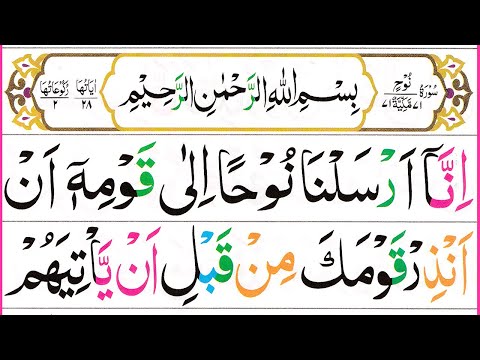 سُوْرَةُ نُوْحٍ مَكِّيَّةٌ ٧١ ٧١
بِسْمِ اللهِ الرَّحْمٰنِ الرَّحِيْمِ
اٰيَاتُهَا ٢٨ رُكُوْعَاتُهَا ٢
اِنَّاۤ اَرْسَلْنَا نُوْحًا اِلٰى قَوْمِهٖۤ اَنْ
اَنْذِرْ قَوْمَكَ مِنْ قَبْلِ اَنْ يَّاْتِيَهُمْ